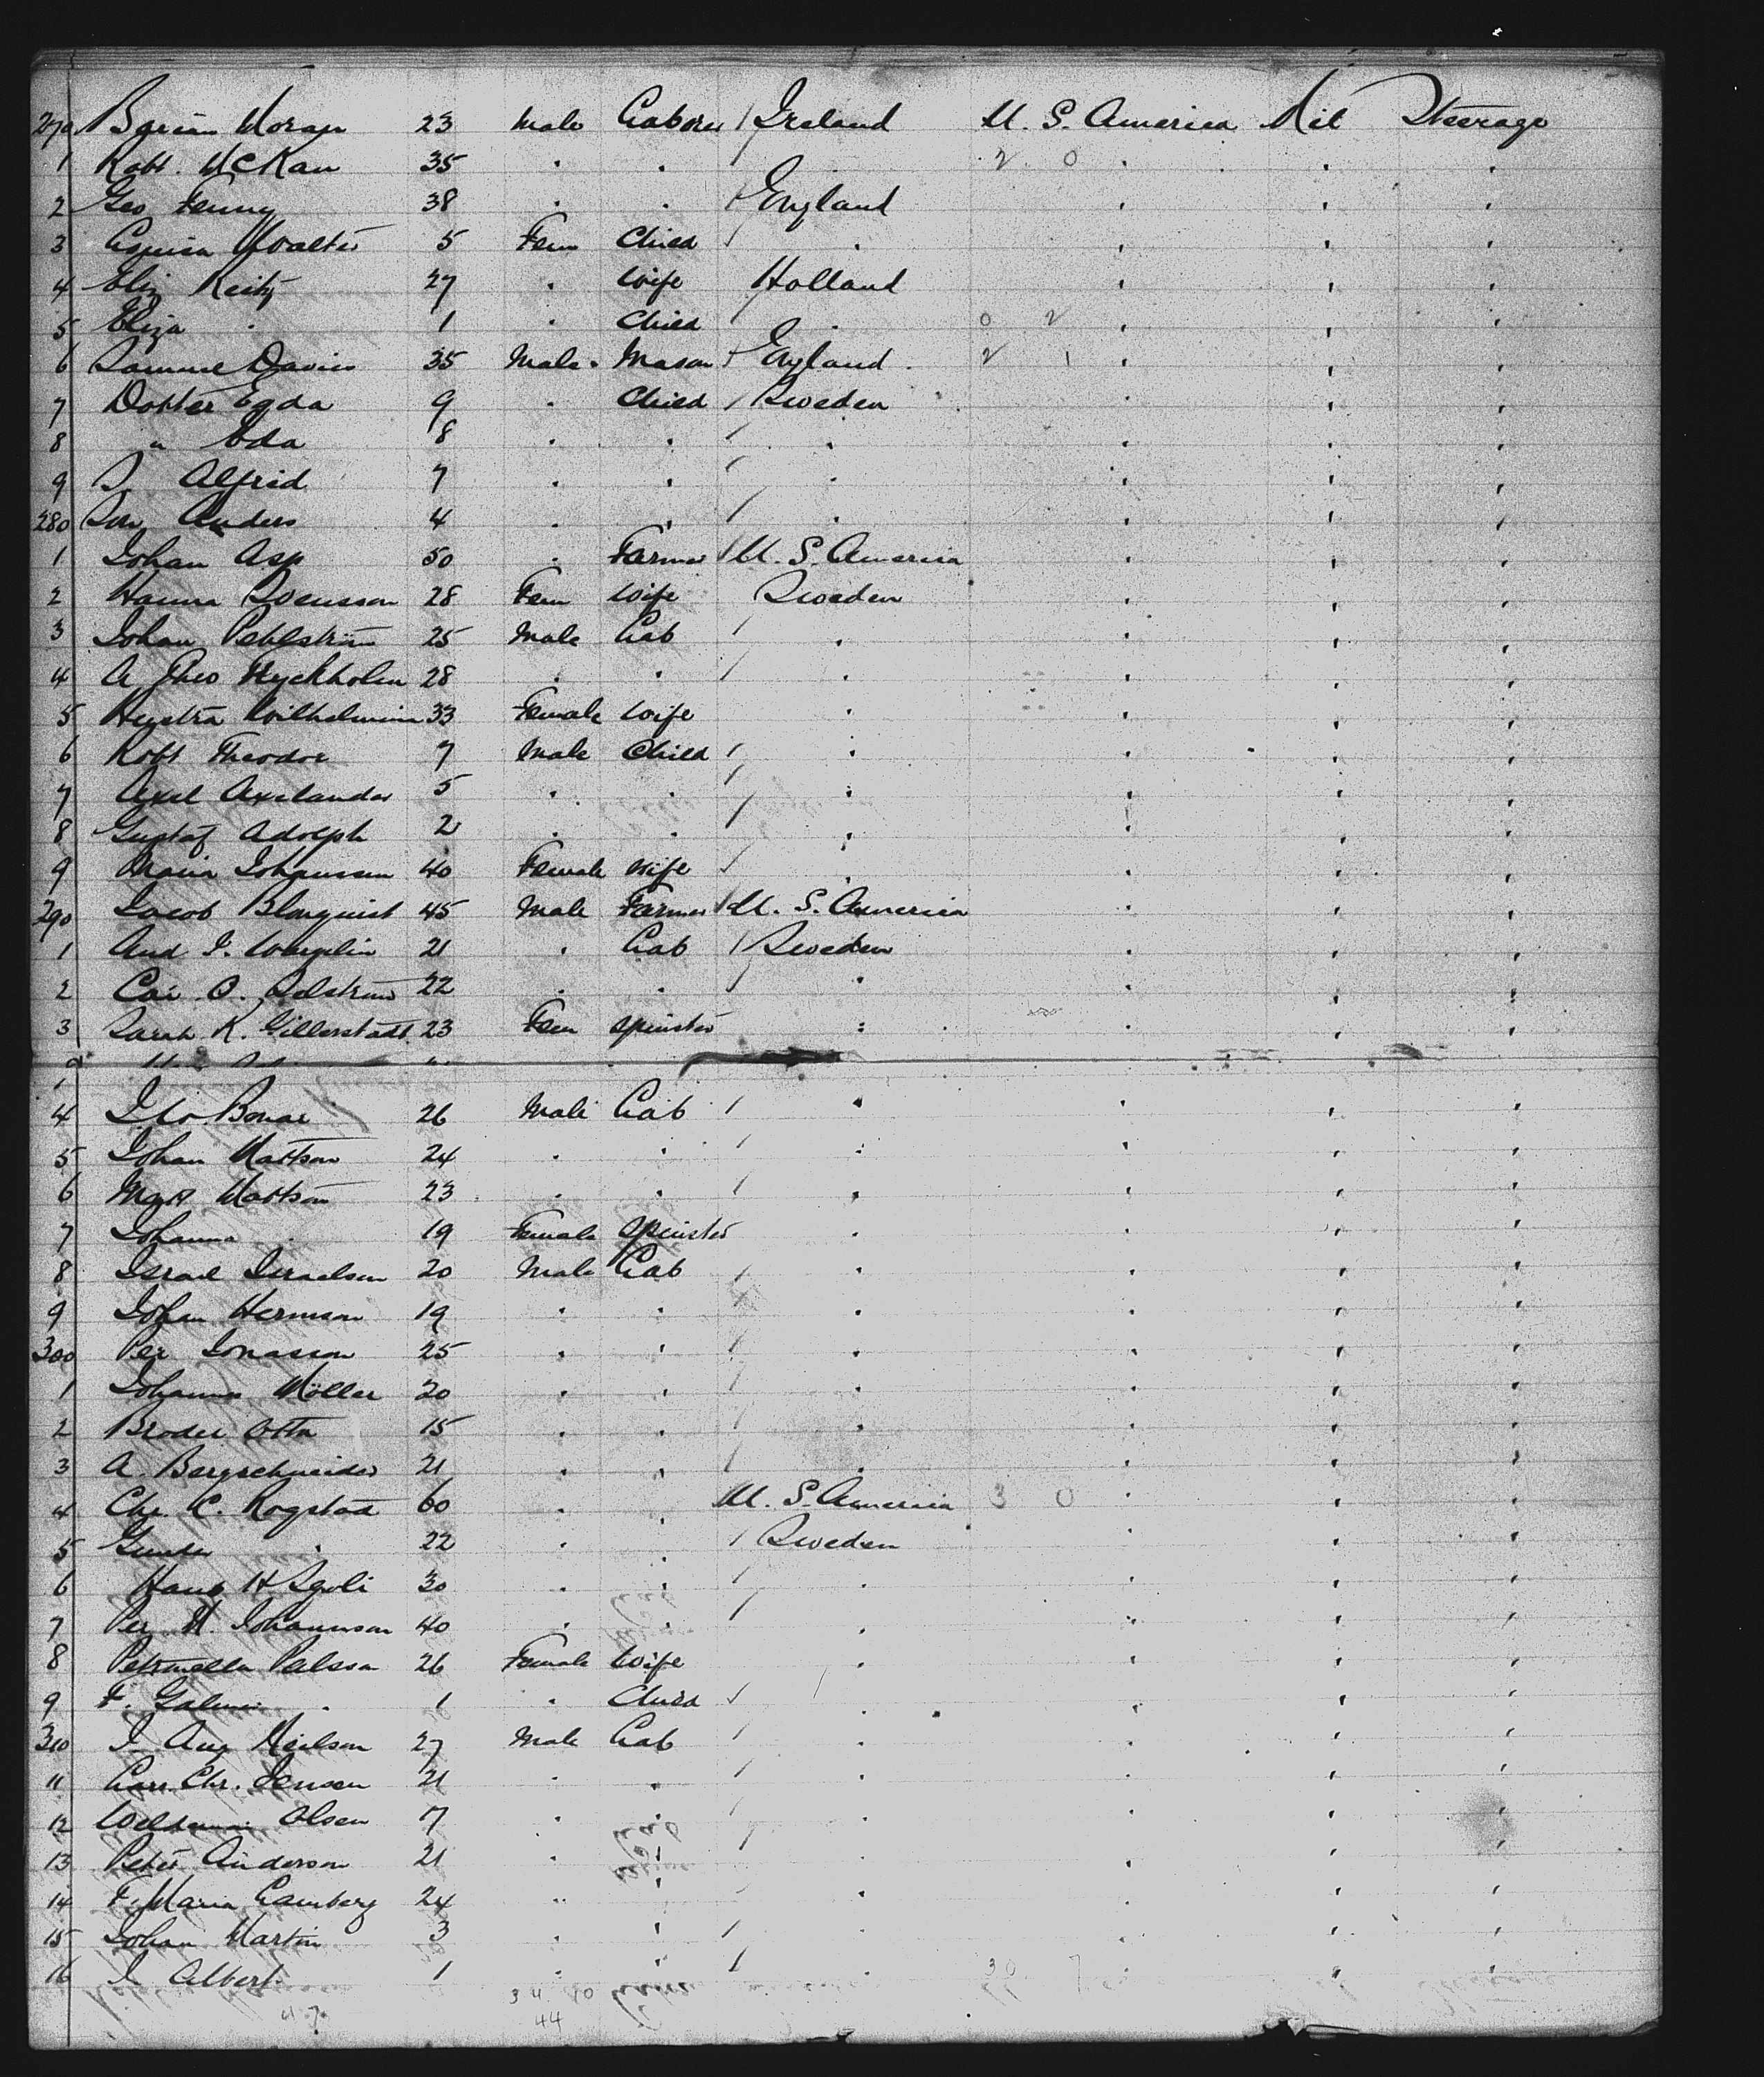 270 Brian Moran 23 Male Labore / Ireland U. S. America Nil Steerage
1 Robt. McKau 35 " " 2 0 " " "
2 Geo Fenny 38 " " / England " " "
3 Walter 5 Fem Child / " " " "
4 Eliz Keitz 27 " Wife Holland " " "
5 Eliza " 1 " Child / " 0 2 " " "
6 Samuel Davies 35 Male " Mason / England 2 1 " " "
7 Dotter Egda 9 " Child / Sweden " " "
8 " Eda 8 " " / " " " "
9 S Alfrid 7 " " / " " " "
280 Son Anders 4 " " / " " " "
1 Johan Asp 50 " Farmer / U. S. America " " "
2 Hanna Svensson 28 Fem Wife Sweden " " "
3 Johan Pehlström 25 Male Lab / " " " "
4 A Theo Nyckholm 28 " " / " " " "
5 Wilhelmina 33 Female Wife " " " "
6 Robt Theodor 7 Male Child / " " " "
7 Axel Axelander 5 " " / " " " "
8 Gustaf Adolph 2 " " / " " " "
9 Maria Johansson 40 Female Wife / " " " "
290 Jacob Blomquist 45 Male Farmer / U. S. America " " "
1 And J. 21 " Lab / Sweden " " "
2 Car. O. 22 " " / " " " "
3 Sarah K. Gillerstadt 23 Fem Spinster " " " "
4 Bonar 26 Male Lab / " " " "
5 Johan Mattson 24 " " / " " " "
6 Matt Mattson 23 " " / " " " "
7 Johanna " 19 Female Spinster " " " "
8 Israel Israelson 20 Male Lab / " " " "
9 Johan Herman 19 " " / " " " "
300 Per Jonasson 25 " " / " " " "
1 Johannes Möller 20 " " / " " " "
2 Broder Otto 15 " " / " " " "
3 A. Bergschneider 21 " " / " " " "
4 Chr. C. Rogstad 60 " " U. S. America 3 0 " " "
5 Gunder " 22 " " / Sweden " " "
6 Hans H 30 " " / " " " "
7 Per N. Johannson 40 " " / " " " "
8 Petronella Palsson 26 Female Wife / " " " "
9 F. " 1 " Child / " " " "
310 J. Aug Neilson 27 Male Lab / " " " "
11 Chr. Jensen 21 " " / " " " "
12 Olsen 17 " " / " " " "
13 Peter Anderson 21 " " / " " " "
14 F. Maria Lamberg 24 " " / " " " "
15 Johan Martin 3 " " / " " " "
16 J. Albert 1 " " / " 30 7 " " "
47 34 10
44